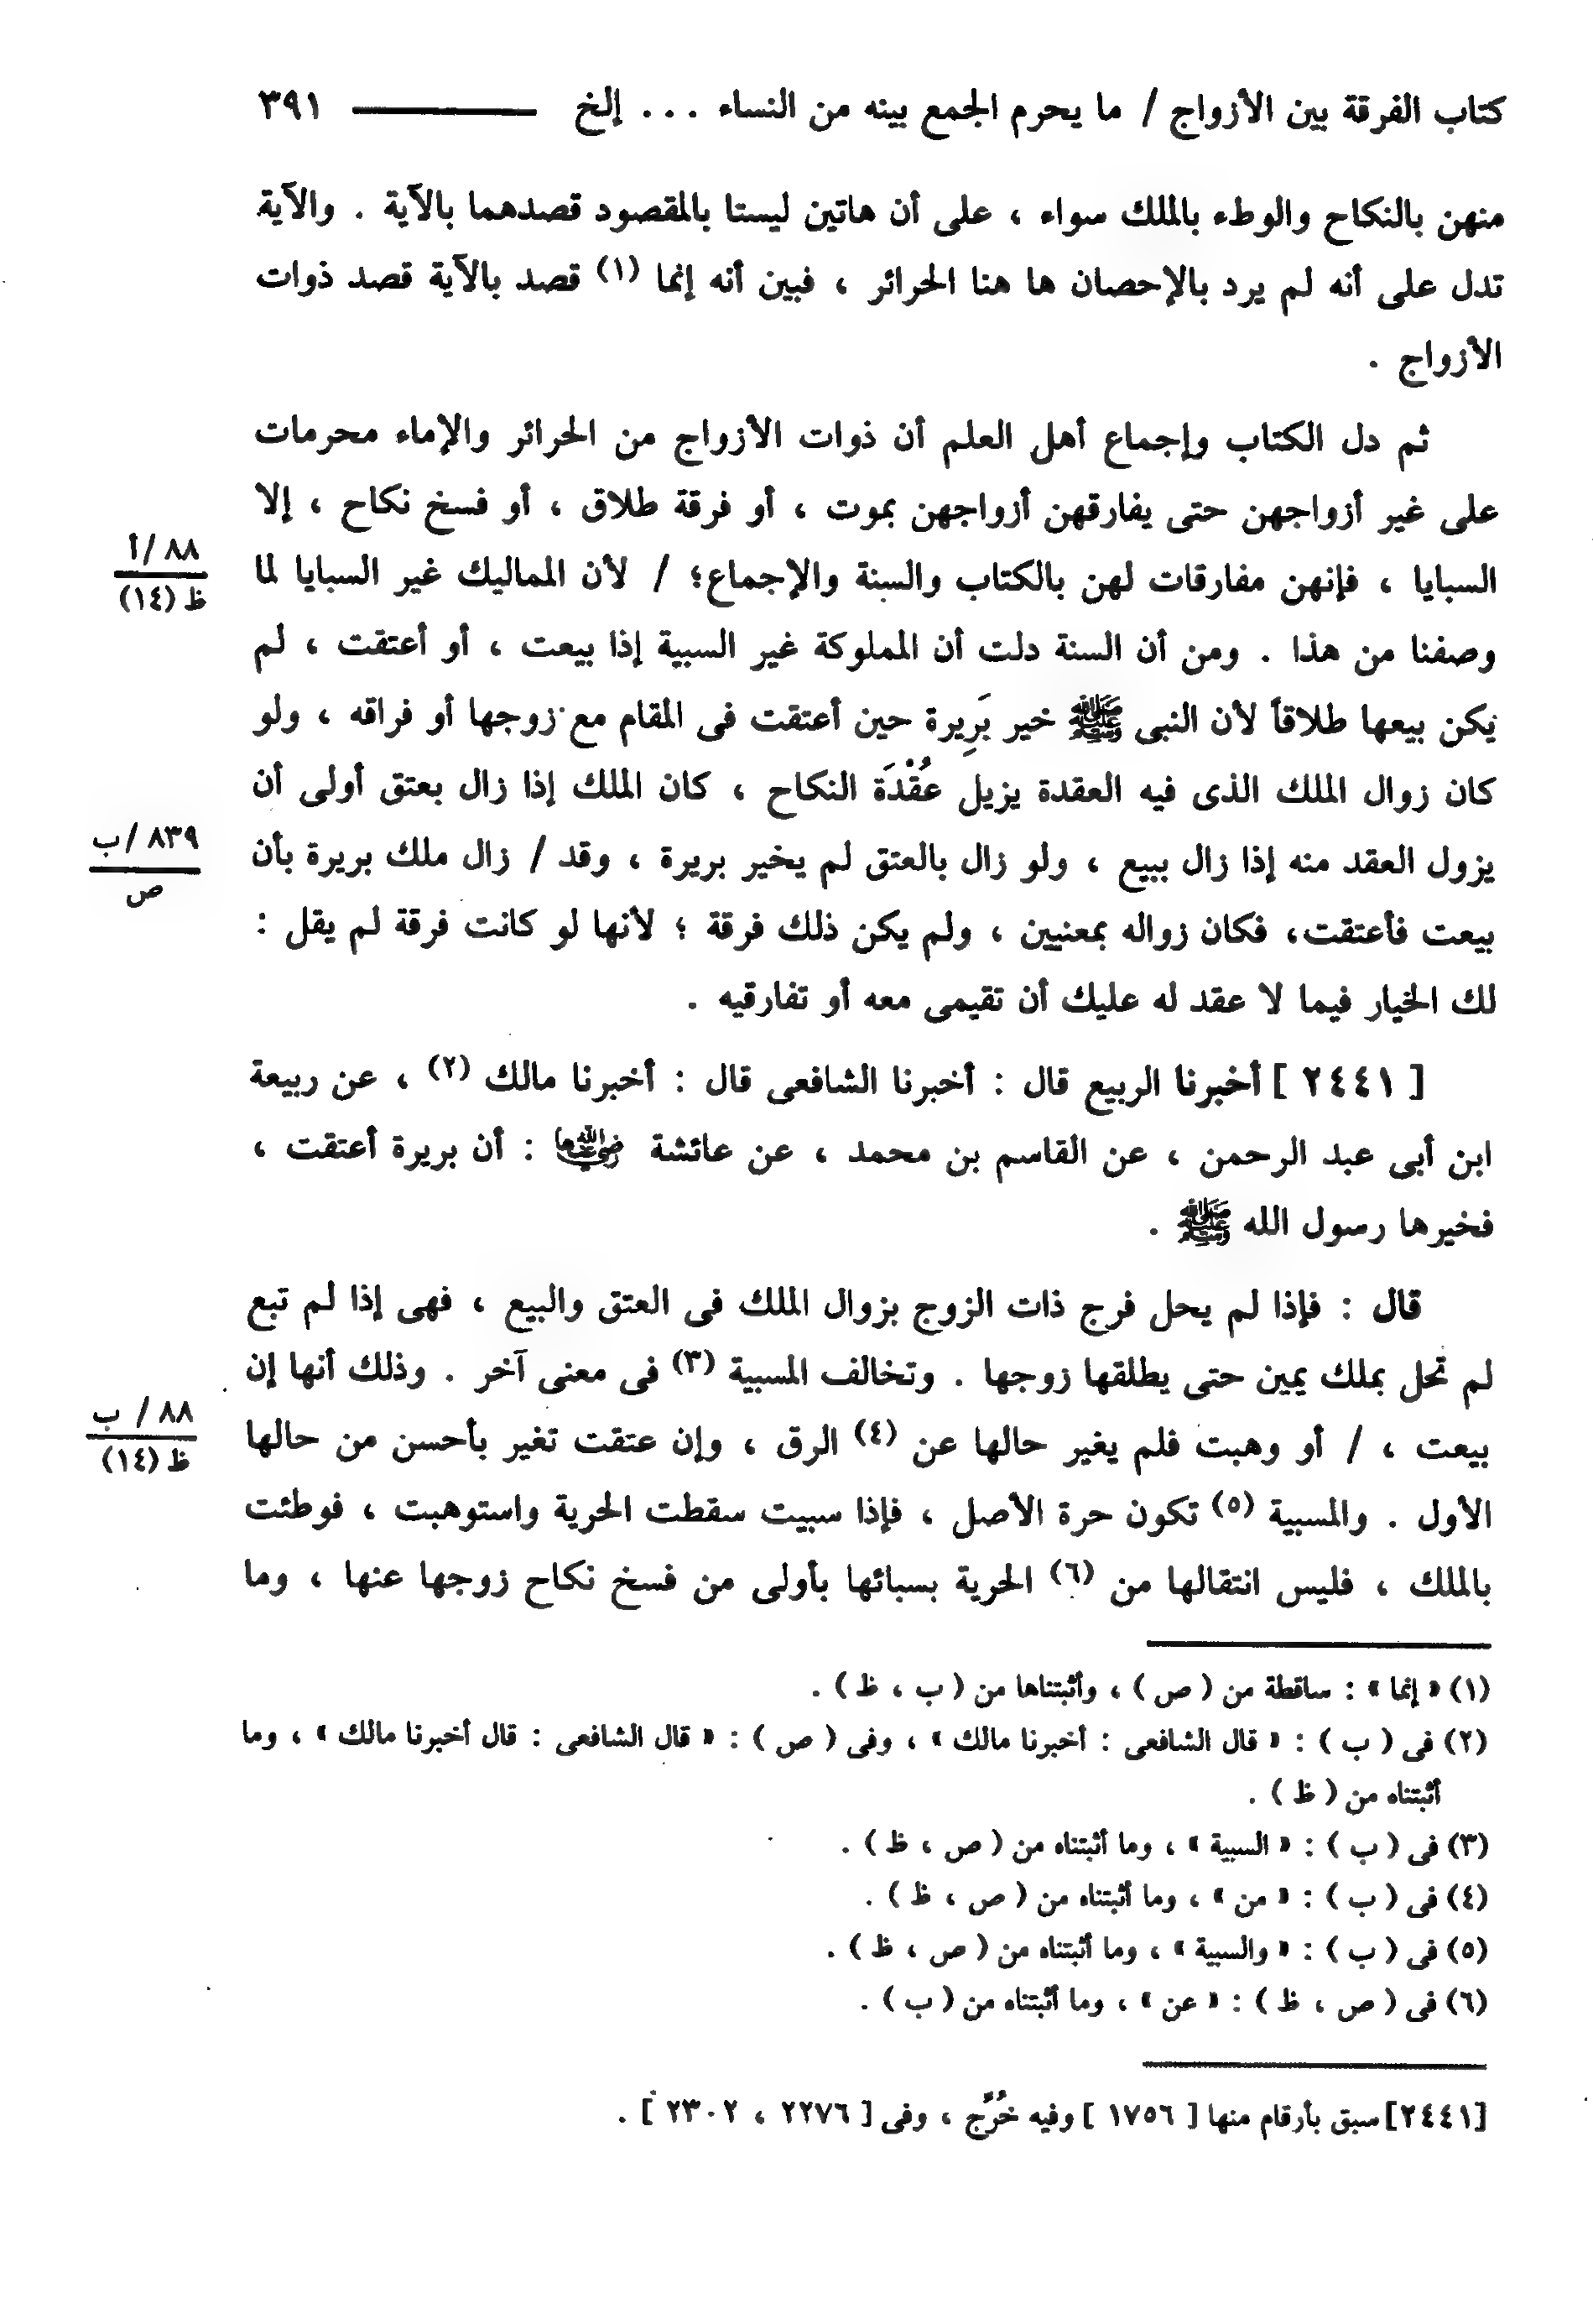 كتاب الفرقة بين الأزواج / ما يحرم الجمع بينه من النساء . . . إلخ ٣٩١
منهن بالنكاح والوطء بالملك سواء ، على أن هاتين ليستا بالمقصود قصدهما بالآية . والآية
تدل على أنه لم يرد بالإحصان ها هنا الحرائر ، فبين أنه إنما (١) قصد بالآية قصد ذوات
الأزواج .
ثم دل الكتاب وإجماع أهل العلم أن ذوات الأزواج من الحرائر والإماء محرمات
على غير أزواجهن حتى يفارقهن أزواجهن بموت ، أو فرقة طلاق ، أو فسخ نكاح ، إلا
السبايا ، فإنهن مفارقات لهن بالكتاب والسنة والإجماع؛ / لأن المماليك غير السبايا لما
٨٨ /أ
ظ (١٤)
وصفنا من هذا . ومن أن السنة دلت أن المملوكة غير السبية إذا بيعت ، أو أعتقت ، لم
يكن بيعها طلاقاً لأن النبى ﷺ خير بَرِيرة حين أعتقت فى المقام مع زوجها أو فراقه ، ولو
كان زوال الملك الذى فيه العقدة يزيل عُقْدَة النكاح ، كان الملك إذا زال بعتق أولى أن
يزول العقد منه إذا زال ببيع ، ولو زال بالعتق لم يخير بريرة ، وقد / زال ملك بريرة بأن
٨٣٩ /ب
ص
بيعت فأعتقت، فكان زواله بمعنيين ، ولم يكن ذلك فرقة ؛ لأنها لو كانت فرقة لم يقل :
لك الخيار فيما لا عقد له عليك أن تقيمى معه أو تفارقيه .
[ ٢٤٤١ ] أخبرنا الربيع قال : أخبرنا الشافعى قال : أخبرنا مالك (٢) ، عن ربيعة
ابن أبى عبد الرحمن ، عن القاسم بن محمد ، عن عائشة رضي الله عنها : أن بريرة أعتقت ،
فخيرها رسول الله ﷺ .
قال : فإذا لم يحل فرج ذات الزوج بزوال الملك فى العتق والبيع ، فهى إذا لم تبع
لم تحل بملك يمين حتى يطلقها زوجها . وتخالف المسبية (٣) فى معنى آخر . وذلك أنها إن
بيعت ، / أو وهبت فلم يغير حالها عن (٤) الرق ، وإن عتقت تغير بأحسن من حالها
٨٨ / ب
ظ (١٤)
الأول . والمسبية (٥) تكون حرة الأصل ، فإذا سبيت سقطت الحرية واستوهبت ، فوطئت
بالملك ، فليس انتقالها من (٦) الحرية بسبائها بأولى من فسخ نكاح زوجها عنها ، وما
(١) « إنما » : ساقطة من ( ص ) ، وأثبتناها من ( ب ، ظ ) .
(٢) فى ( ب ) : « قال الشافعى : أخبرنا مالك » ، وفى ( ص ) : « قال الشافعى : قال أخبرنا مالك » ، وما
أثبتناه من ( ظ ) .
(٣) فى ( ب ) : « السبية » ، وما أثبتناه من ( ص ، ظ ) .
(٤) فى ( ب ) : « من » ، وما أثبتناه من ( ص ، ظ ) .
(٥) فى ( ب ) : « والسبية » ، وما أثبتناه من ( ص ، ظ ) .
(٦) فى ( ص ، ظ ) : « عن » ، وما أثبتناه من ( ب ) .
[٢٤٤١] سبق بأرقام منها [ ١٧٥٦ ] وفيه خُرِّج ، وفى [ ٢٢٧٦ ، ٢٣٠٢ ] .